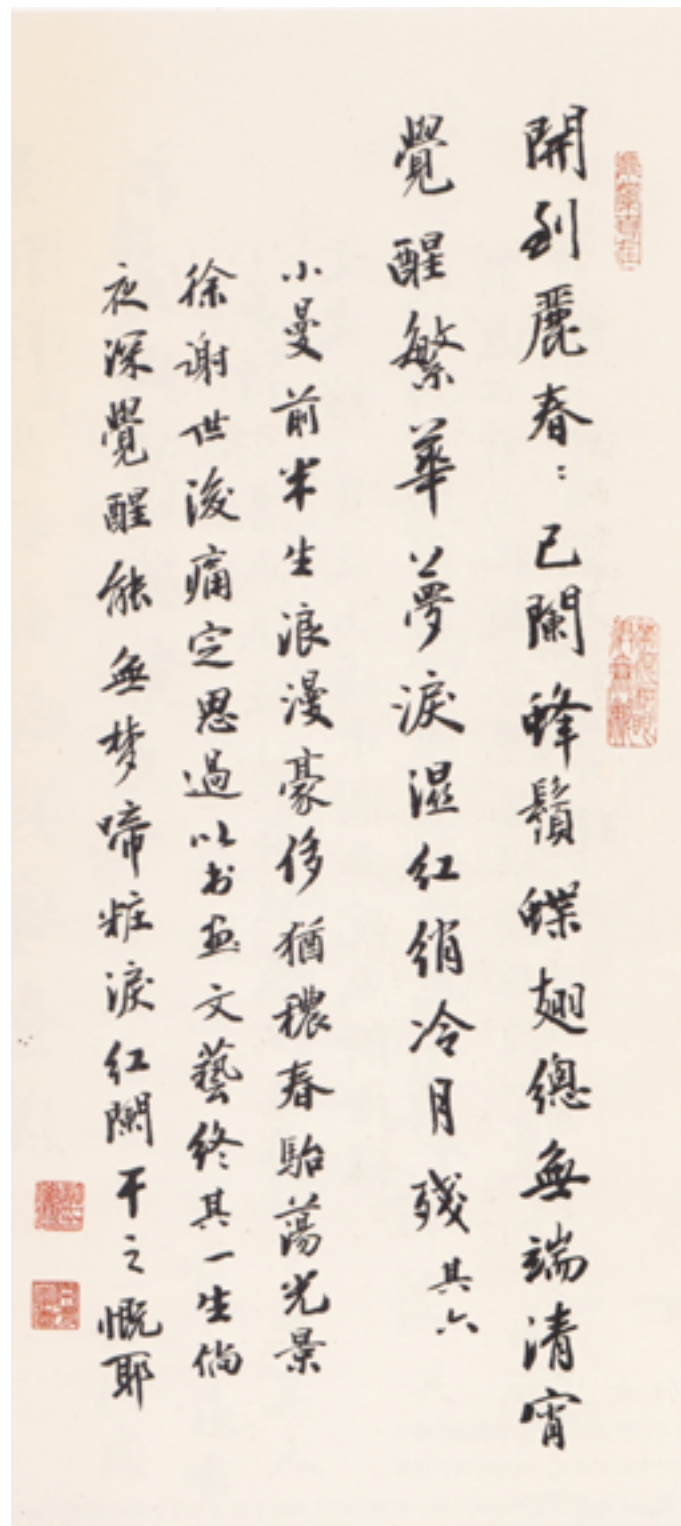 開到麗春：已闌蜂鬚蝶翅總無端清宵
覺醒繁華夢淚濕紅綃冷月殘其六
小曼前半生浪漫豪侈猶穠春駘蕩光景
徐謝世後痛定思過以书画文藝終其一生倘
夜深覺醒能無梦啼粧淚红闌干之慨耶